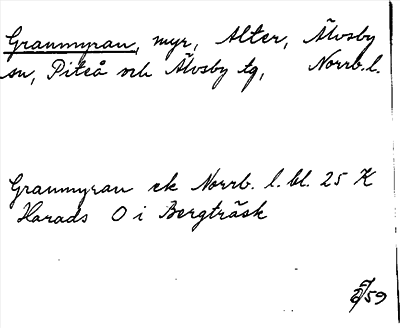 Granmyran, myr, Alter, Älvsby
sn, Piteå och Älvsby tg, Norrb. l.
Granmyran ek Norrb. l. bl. 25 K
Harads O i Bergträsk
59